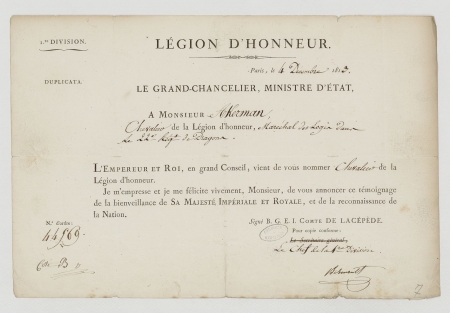 1.re DIVISION.
LÉGION D'HONNEUR.
DUPLICATA.
Paris, le 4 Decembre 1813.
LE GRAND-CHANCELIER, MINISTRE D'ÉTAT,
A MONSIEUR Akerman,
Chevalier de la Légion d'honneur, Marechal des Logis dans
Le 22e Régt de Dragons
L'EMPEREUR ET ROI, en grand Conseil, vient de vous nommer Chevalier de la
Légion d'honneur.
Je m'empresse et je me félicite vivement, Monsieur, de vous annoncer ce témoignage
de la bienveillance de SA MAJESTÉ IMPÉRIALE ET ROYALE, et de la reconnaissance de
la Nation.
N.° d'ordre:
44569.
Signé B. G. E. L. COMTE DE LACÉPÈDE.
Pour copie conforme:
Le Secrétaire général,
Le Chef de la 1re Division
Cote B